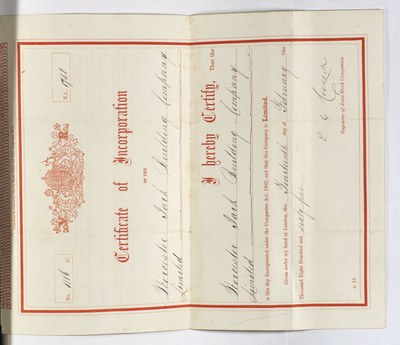 No. 1718 C.
N.L. 1718
Certificate of Incorporation
OF THE
Worcester Park Building Company
Limited
I hereby Certify, That the
Worcester Park Building Company
Limited
is this day Incorporated under the Companies Act, 1862, and that this Company is Limited.
Given under my hand at London, this Fourteenth day of February One
Thousand Eight Hundred and sixty five
E C Curzon
Registrar of Joint Stock Companies.